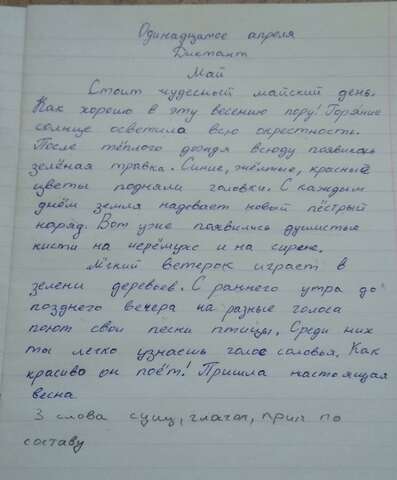 Одинадцатое апреля
Диктант
Май
Стоит чудесный майский день.
Как хорошо в эту весеню пору! Горячие
солнце осветила всю окрестность.
После тёплого дождя всюду появилась
зелёная травка. Синие, жёлтые, красные
цветы подняли головки. С каждым
днём земля надевает новый пёстрый
наряд. Вот уже появились душистые
кисти на черёмухе и на сирене.
Лёгкий ветерок играет в
зелени деревьев. С раннего утра до
позднего вечера на разные голоса
поют свои песни птицы. Среди них
ты легко узнаешь голос соловья. Как
красиво он поёт! Пришла настоящая
весна
3 слова сущ, глагол, прил по
составу